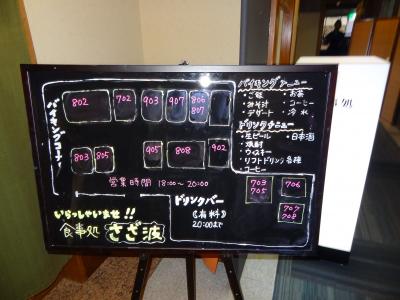 バイキングコーナー
802
702
903
907
806
807
803
805
905
808
902
営業時間 18:00〜20:00
バイキングメニュー
・ご飯
・お茶
・みそ汁
・コーヒー
・デザート
・冷水
ドリンクメニュー
・生ビール
・日本酒
・焼酎
・ウィスキー
・ソフトドリンク各種
・コーヒー
703
705
706
707
708
ドリンクバー
(有料)
20:00まで
いらっしゃいませ!!
食事処 さざ波
処